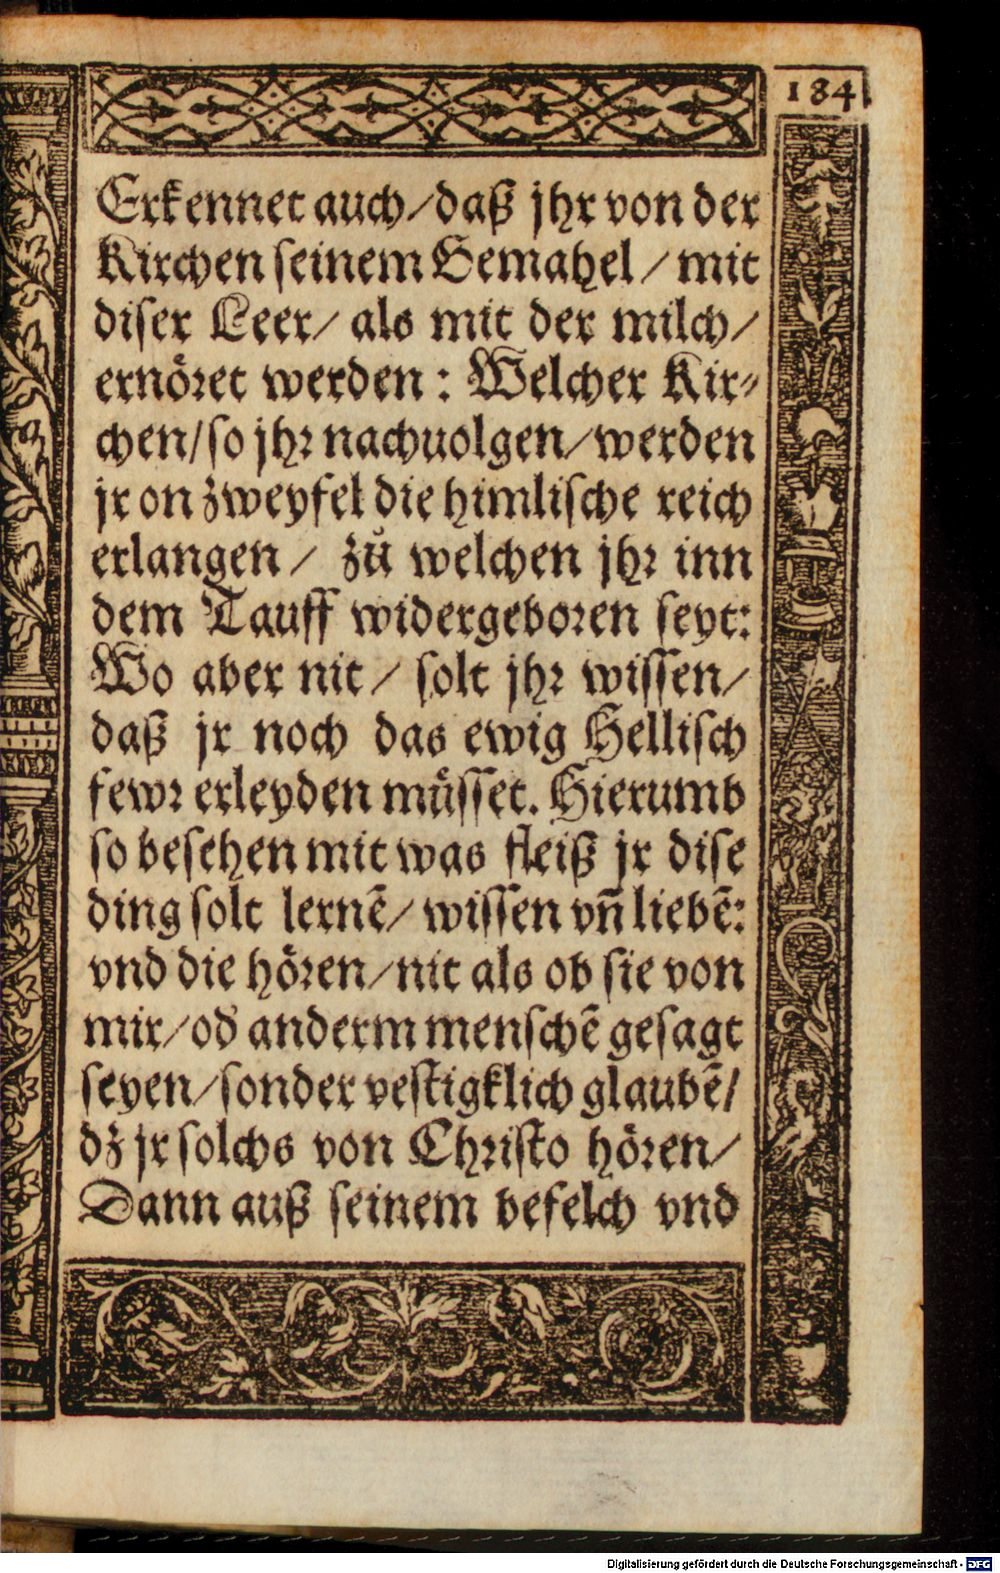 184
Erkennet auch/daß jhr von der
Kirchen seinem Gemahel/ mit
diser Leer/ als mit der milch/
ernöret werden: Welcher Kir⸗
chen/so jhr nachuolgen/werden
jr on zweyfel die himlische reich
erlangen/ zů welchen jhr inn
dem Tauff widergeboren seyt:
Wo aber nit/ solt jhr wissen/
daß jr noch das ewig Hellisch
fewr erleyden müsset. Hierumb
so besehen mit was fleiß jr dise
ding solt lernē/ wissen vñ liebē:
vnd die hören/nit als ob sie von
mir/od̃ anderm menschē gesagt
seyen/sonder vestigklich glaubē/
dz jr solchs von Christo hören/
Dann auß seinem befelch vnd
Digitalisierung gefördert durch die Deutsche Forschungsgemeinschaft - DFG